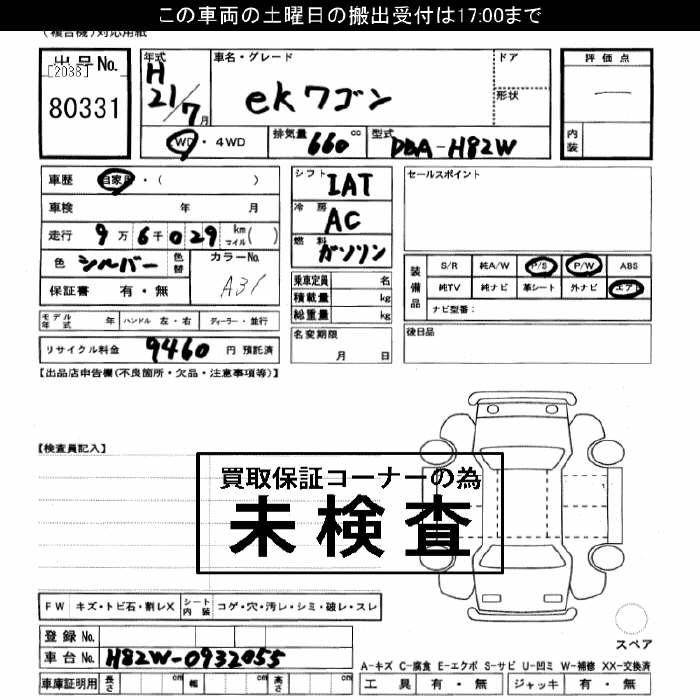 この車両の土曜日の搬出受付は17:00まで
(複合機)対応用紙
出品No.
[2038]
80331
年式
H
21/7月
車名・グレード
ekワゴン
ドア
形状
評価点
—
内装
2WD・4WD
排気量 660 cc
型式 DBA-H82W
車歴 自家用・( )
車検 年 月
走行 9万6千029 km マイル( )
色 シルバー 色替
カラーNo.
A31
保証書 有・無
シフト IAT
冷房 AC
燃料 ガソリン
乗車定員 名
積載量 kg
総重量 kg
セールスポイント
装備品
S/R 純A/W P/S P/W ABS
純TV 純ナビ 革シート 外ナビ エアB
ナビ型番：
モデル年式 年 ハンドル 左・右 ディーラー・並行
リサイクル料金 9460 円 預託済
名変期限
月 日
後日品
【出品店申告欄(不良箇所・欠品・注意事項等)】
【検査員記入】
買取保証コーナーの為
未検査
FW キズ・トビ石・割レX シート内装 コゲ・穴・汚レ・シミ・破レ・スレ
スペア
登録No.
車台No. H82W-0932055
車庫証明用 長さ cm 幅 cm 高さ cm
A-キズ C-腐食 E-エクボ S-サビ U-凹ミ W-補修 XX-交換済
工具 有・無 ジャッキ 有・無